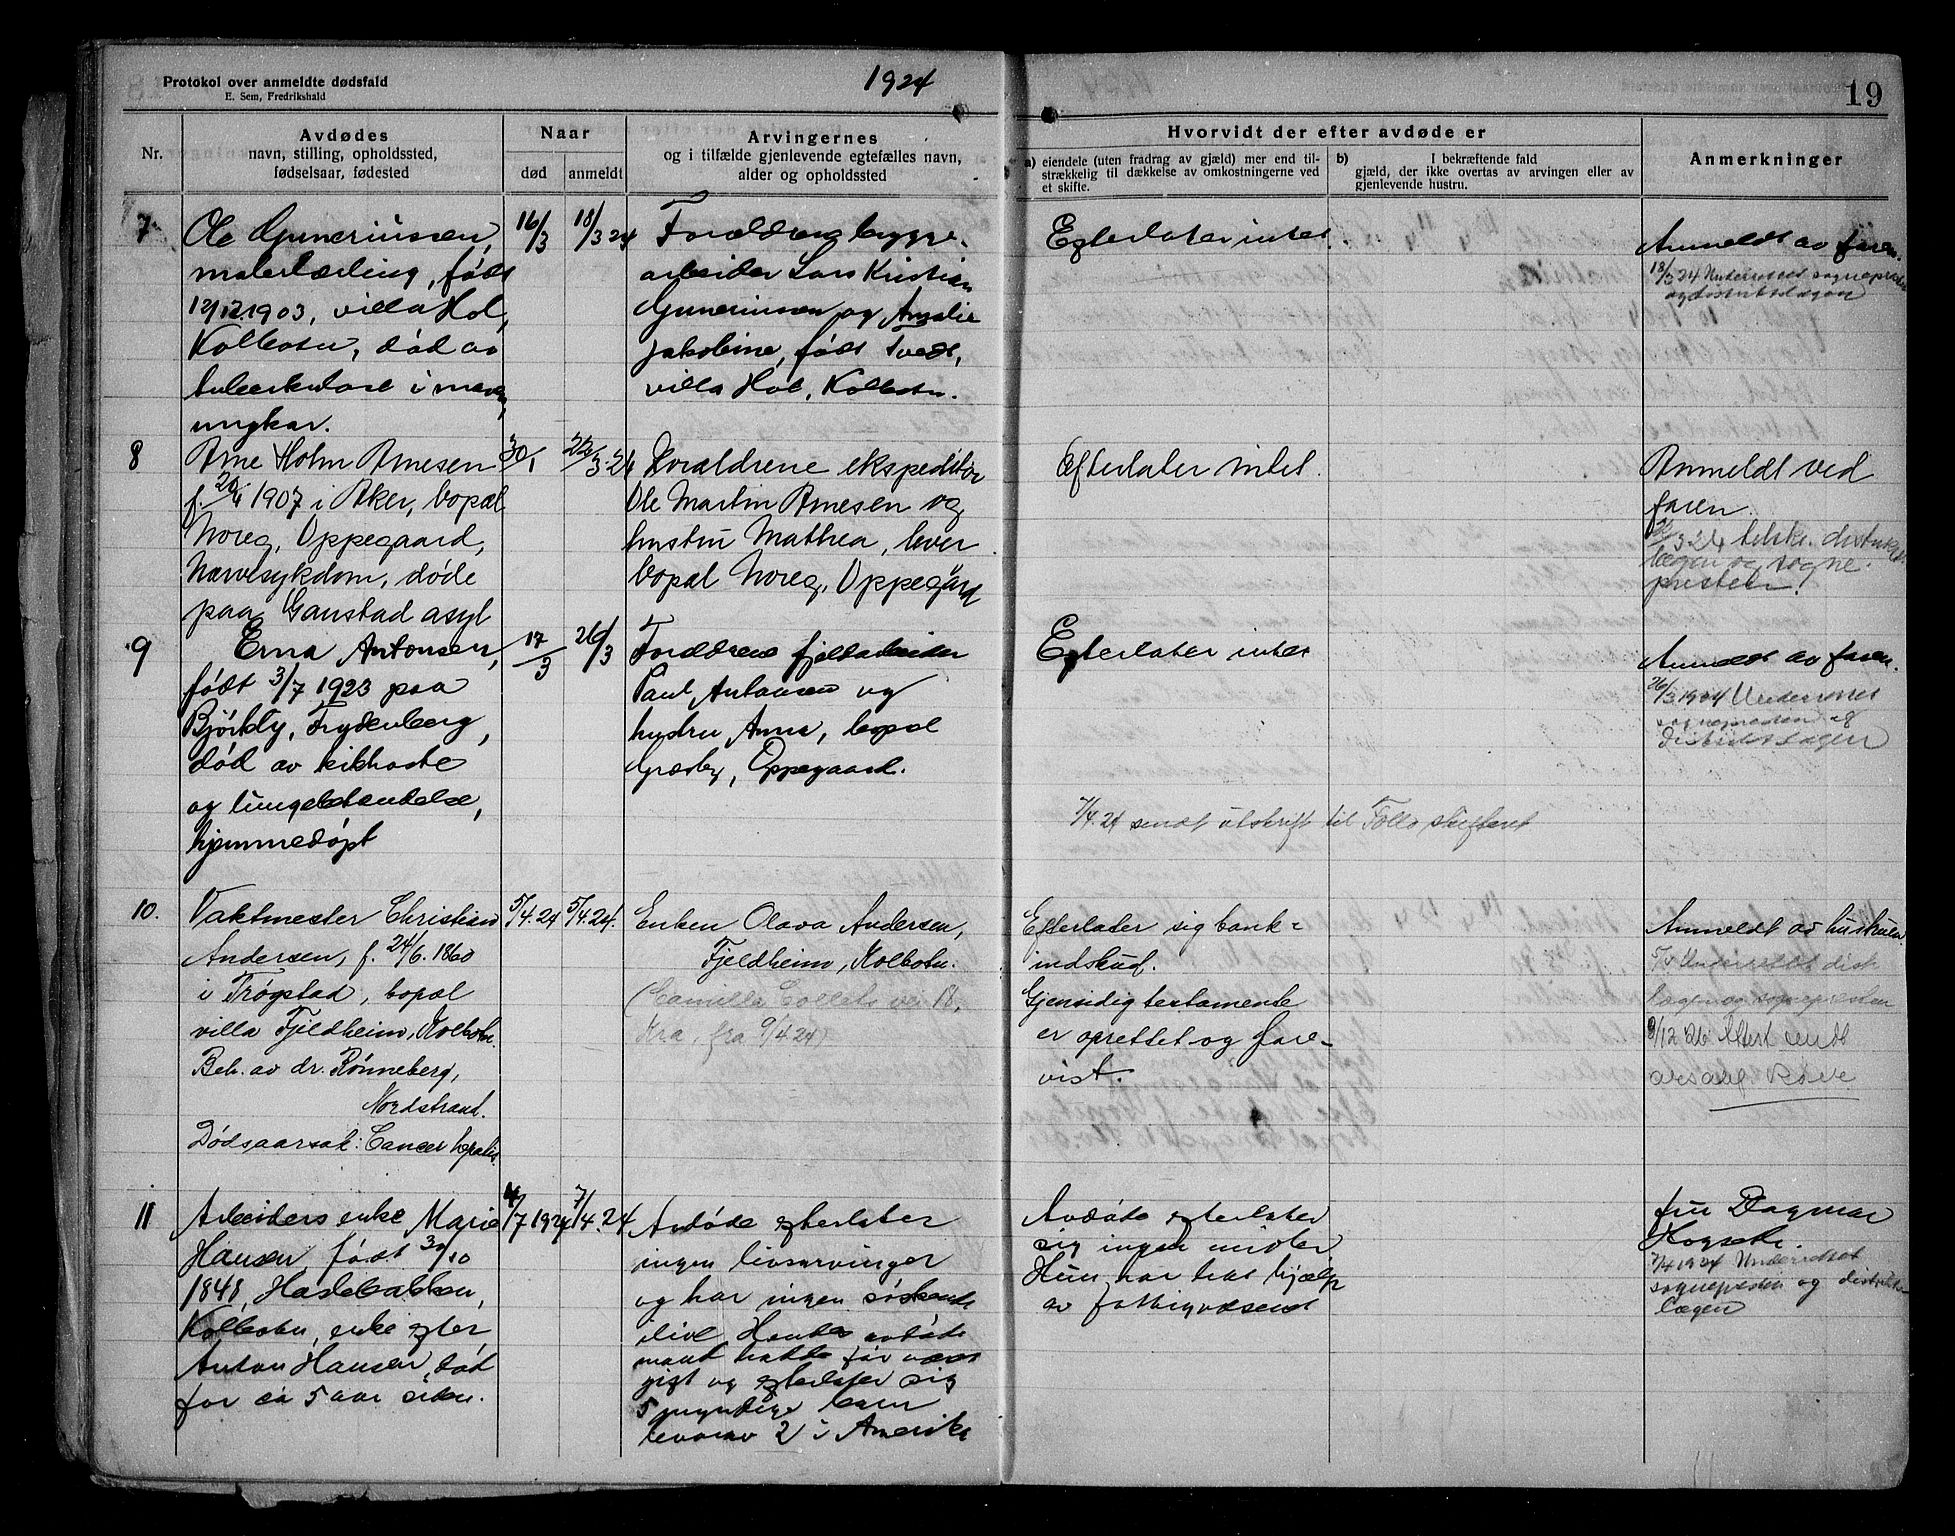 Protokol over anmeldte dødsfald
E. Sem, Fredrikshald
1924
19
Nr.
Avdødes
navn, stilling, opholdssted,
fødselsaar, fødested
Naar
død
anmeldt
Arvingernes
og i tilfælde gjenlevende egtefælles navn,
alder og opholdssted
Hvorvidt der efter avdøde er
a) eiendele (uten fradrag av gjæld) mer end til-
strækkelig til dækkelse av omkostningerne ved
et skifte.
b) I bekræftende fald
gjæld, der ikke overtas av arvingen eller av
gjenlevende hustru.
Anmerkninger
7
Ole Guneriussen,
malerlærling, født
12/12.1903, villa Hol,
Kolbotn, død av
tuberkulose i
ungkar.
16/3
18/3 24
Forældrene
arbeider Lars Kristian
Guneriussen og Amalie
Jakobine, født Tvedt,
villa Hol, Kolbotn.
Efterlater intet
Anmeldt av faren.
18/3 24 Underrettet sogneprest
og distriktslægen
8
Arne Holm Arnesen
f. 1907 i Aker, bopæl
Noreg, Oppegaard,
Nervesykdom, døde
paa Gaustad asyl
30/1
22/3-24
Forældrene ekspeditør
Ole Martin Arnesen og
hustru Mathea, lever
bopæl Noreg, Oppegård
Efterlater intet.
Anmeldt ved
faren.
22/3-24 telf. distrikts
lægen og sogne-
presten!
9
Erna Antonsen,
født 3/7 1923 paa
Bjørkly, Frydenberg,
død av kikhoste
og lungebetændelse,
hjemmedøpt
17/3
26/3
Forældrene fjeldarbeider
Paul Antonsen og
hustru Anna, bopæl
Græsby, Oppegaard.
Efterlater intet
Anmeldt av faren.
26/3 1924 Underrettet
sognepresten og
distriktslægen
7/4.24 sendt utskrift til Follo skifteret
10.
Vaktmester Christian
Andersen, f. 24/6. 1860
i Trøgstad, bopæl
villa Fjeldheim, Kolbotn.
Beh. av dr. Rönneberg,
Nordstrand.
Dødsaarsak: Cancer hepatis.
5/4.24
5/4.24.
Enken Olava Andersen,
Fjeldheim, Kolbotn.
(Camilla Colletts vei 18,
Kra, fra 9/4.24)
Efterlater sig bank-
indskud.
Gjensidig testamente
er oprettet og fore-
vist.
Anmeldt av hustruen
5/4 Underrettet distr
lægen og sognepresten
9/12 26 Attest sendt
11
Arbeiders enke Marie
Hansen, født 30/10
1848, Haslebakken,
Kolbotn, enke efter
Anton Hansen, død
for ca 5 aar siden.
4/7 1924
7/4.24
Avdøde efterlater
ingen livsarvinger
og har ingen søskende
ilive. Hendes avdøde
mand hadde før været
gift og efterlater sig
5 myndige barn
hvorav 2 i Amerika
Avdøde efterlater
sig ingen midler
Hun har hat hjælp
av fattigvæsenet
fru Dagmar
7/4 1924 Underrettet
sognepresten og distrikts-
lægen